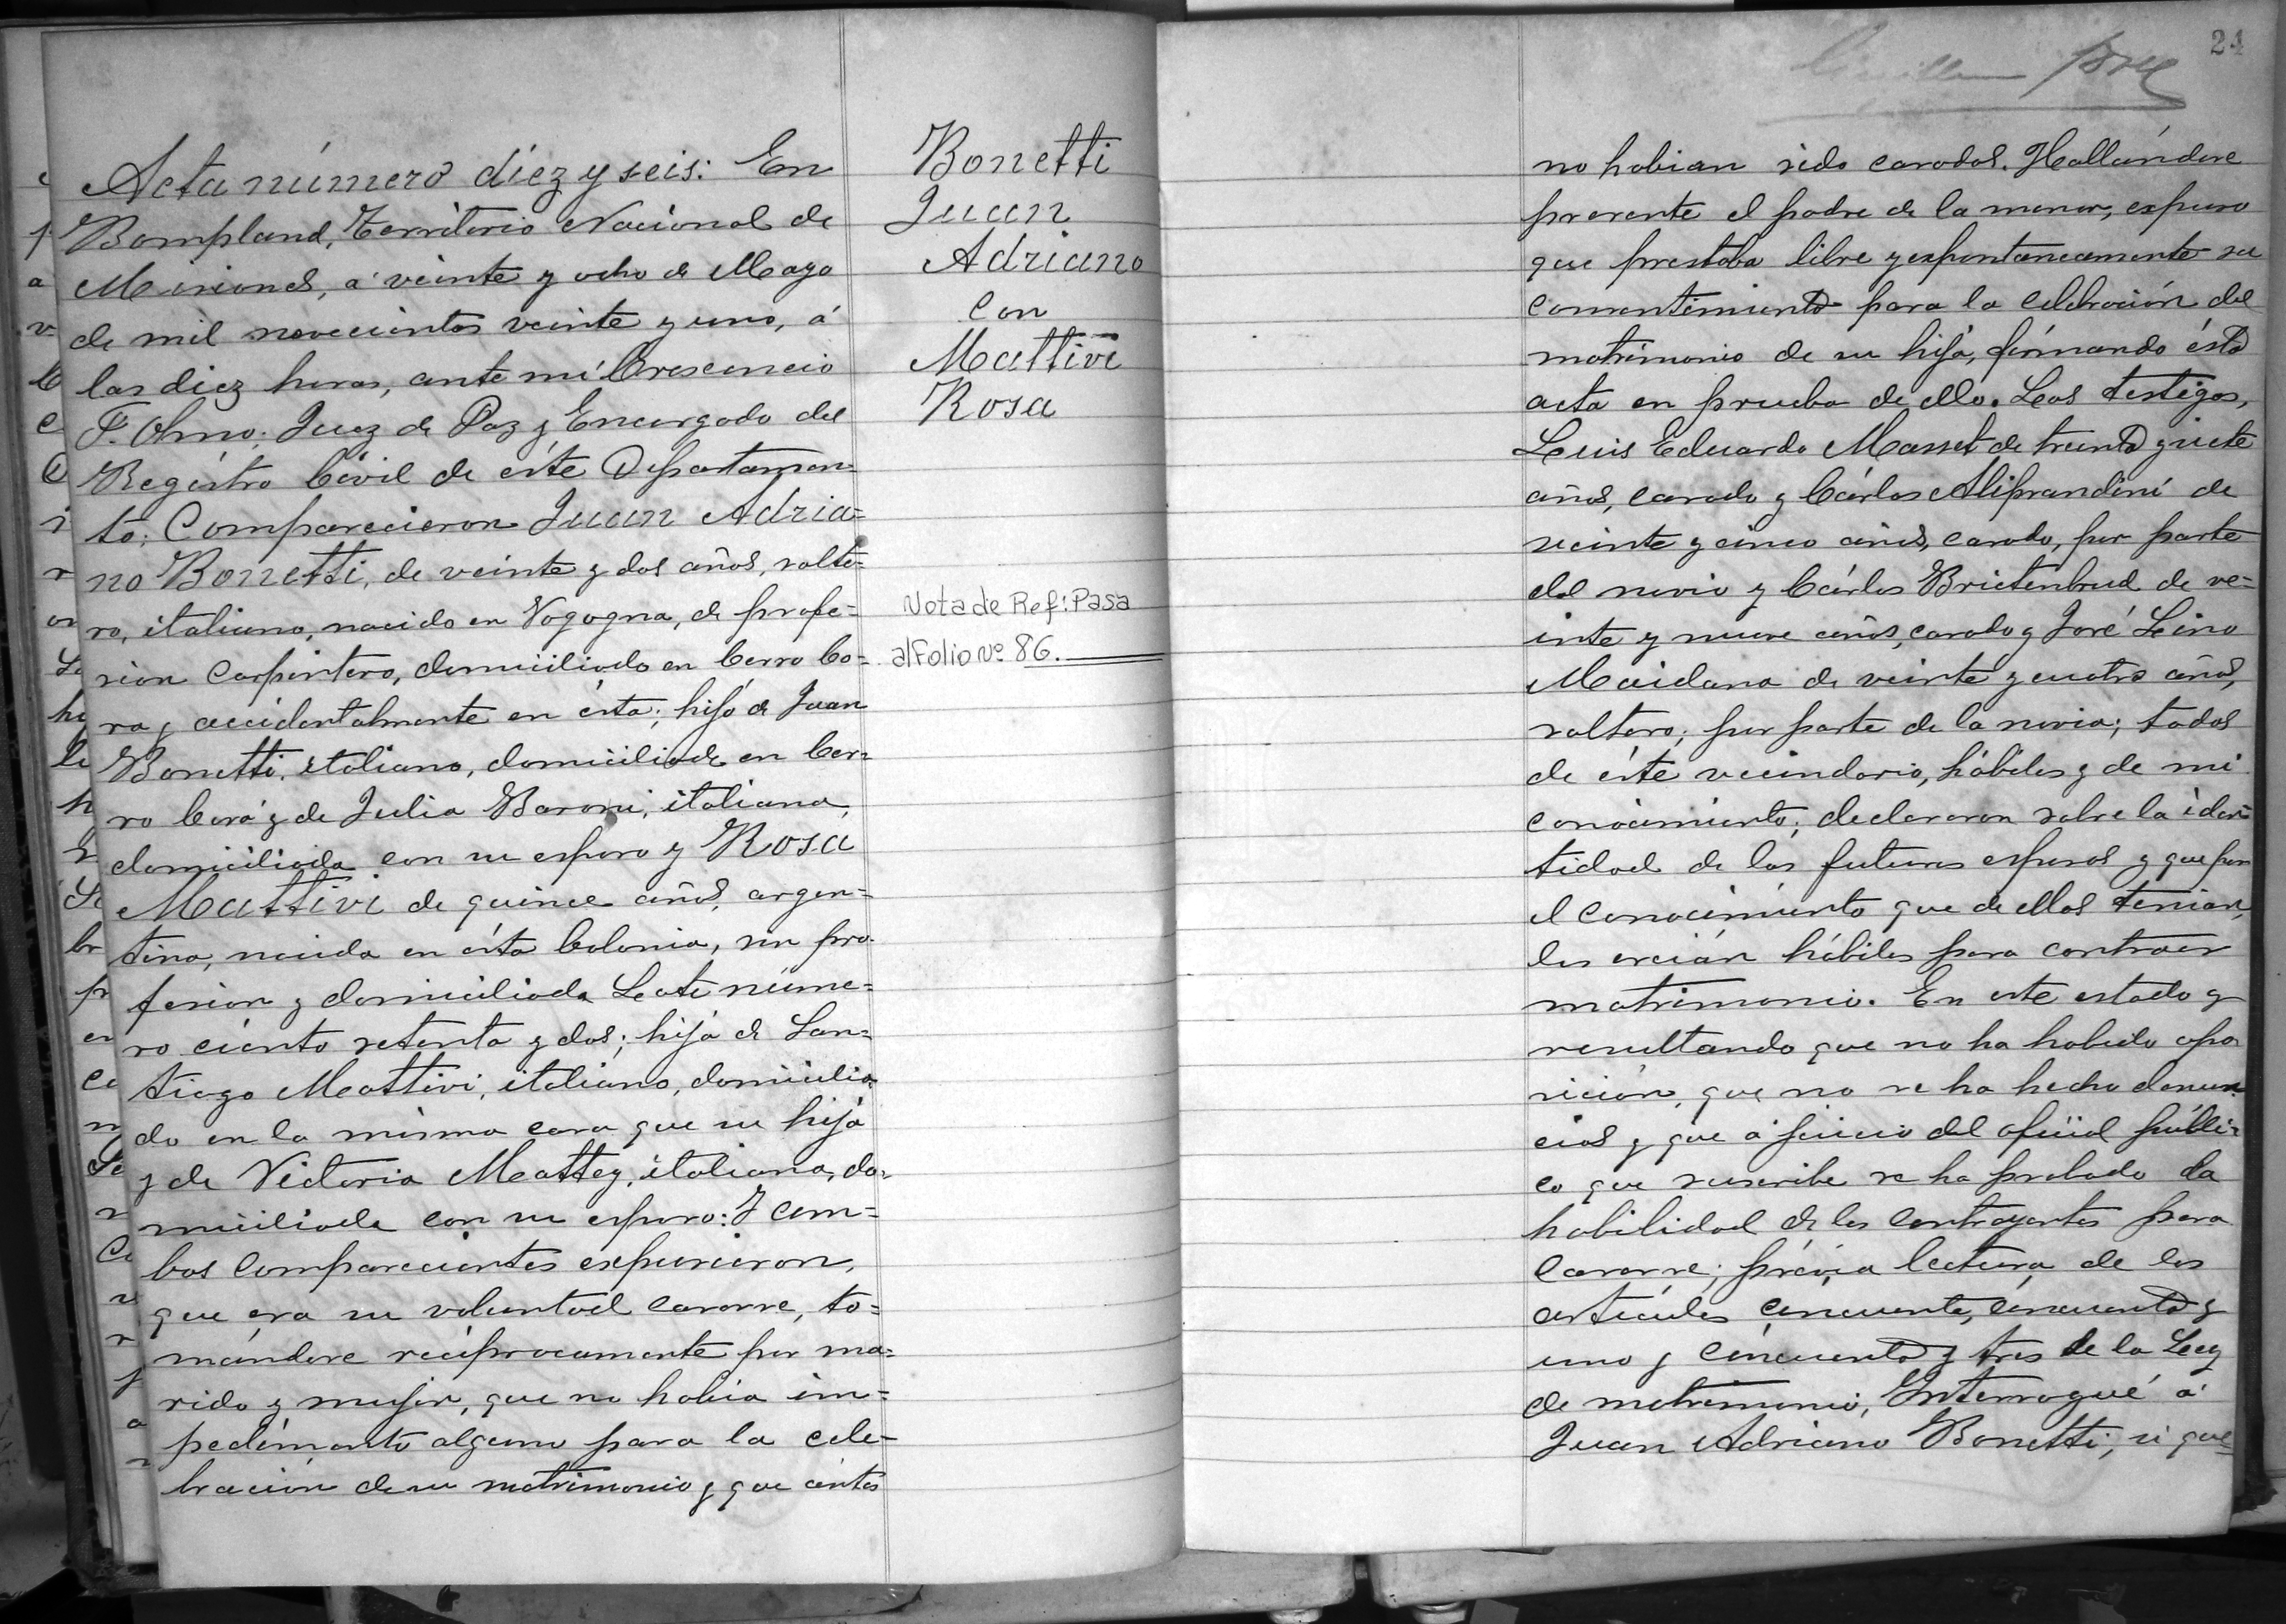 Acta número diez y seis: En
Bompland, Território Nacional de
Misiones, á veinte y ocho de Mayo
de mil novecientos veinte y uno, á
las diez horas, ante mí Crescencio
F. Olmo; Juez de Paz y Encargado del
Registro Civil de éste Departamen=
to; Comparecieron Juan Adria=
no Bonetti, de veinte y dos años, solte=
ro, italiano, nacido en Vogogna, de profe=
sion carpintero, domiciliado en Cerro Co=
ra y accidentalmente en ésta; hijo de Juan
Bonetti, italiano, domiciliado en Cer=
ro Corá y de Julia Baroni, italiana,
domiciliada con su esposo y Rosa
Mattivi de quince años, argen=
tina, nacida en ésta Colonia, sin pro-
fesion y domiciliada Lote núme=
ro ciento setenta y dos; hija de San=
tiago Mattivi, italiano, domicilia=
do en la misma casa que su hija
y de Victoria Mattey, italiana, do=
miciliada con su esposo: Y am=
bos comparecientes expusieron,
que era su voluntad casarse, to=
mándose reciprocamente por ma=
rido y mujer, que no habia im=
pedimento alguno para la cele=
bración de su matrimonio y que ántes
Bonetti
Juan
Adriano
Con
Mattivi
Rosa
Nota de Ref: Pasa
al Folio Nº 86.
24
no habian sido casados. Hallándose
presente el padre de la menor, expuso
que prestaba libre y espontaneamente su
consentimiento para la celebración del
matrimonio de su hija, firmando ésta
acta en prueba de ello. Los testigos,
Luis Eduardo Masset de treinta y siete
años, casado y Cárlos Aliprandini de
veinte y cinco años, casado, por parte
del novio y Cárlos Brietenbrud de ve=
inte y nueve años, casado y José Lino
Maidana de veinte y cuatro años,
soltero, por parte de la novia; todos
de éste vecindario, hábiles y de mi
conocimiento, declararon sobre la iden
tidad de los futuros esposos y que por
el conocimiento que de ellos tenian,
los creián hábiles para contraer
matrimonio. En este estado y
resultando que no ha habido opo
sición, que no se ha hecho denun=
cias y que á juicio del oficial públi=
co que suscribe se ha probado la
habilidad de los contrayentes para
casarse; prévia lectura de los
artículos cincuenta, cincuenta y
uno y cincuenta y tres de la Ley
de matrimonio, Interrogué á
Juan Adriano Bonetti, si que=